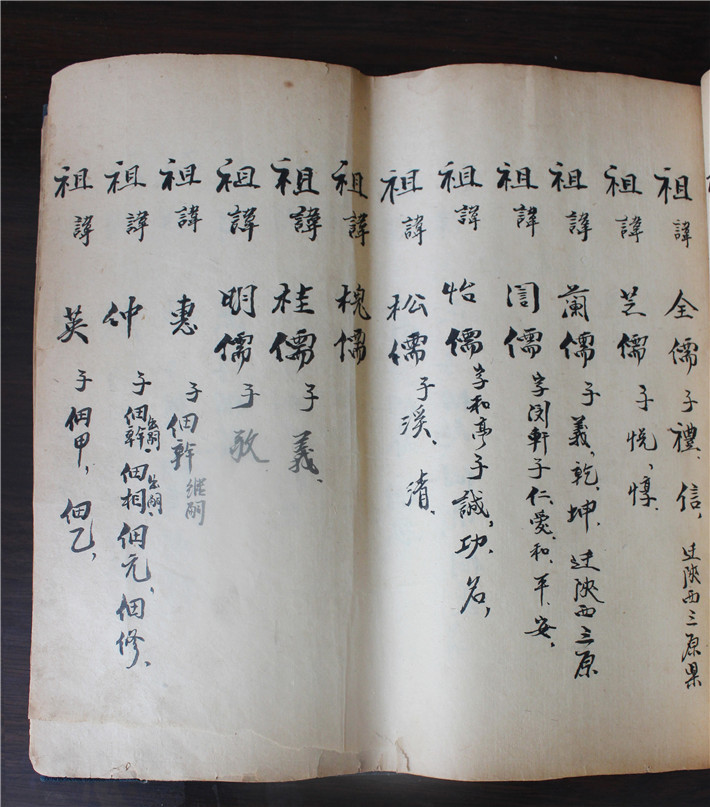 祖諱 全儒 子禮、信, 迁陝西三原果
祖諱 芝儒 子悦、惇、
祖諱 蘭儒 子義、乾、坤、迁陝西三原
祖諱 訚儒 字閔軒 子仁、愛、和、平、安、
祖諱 怡儒 字和亭 子誠、功、名,
祖諱 松儒 子溪、清、
祖諱 槐儒
祖諱 桂儒 子義、
祖諱 明儒 子敬
祖諱 惠 子佃幹 继嗣
祖諱 仲 子佃幹出嗣、佃相出嗣、佃元、佃修、
祖諱 英 子佃甲,佃乙,